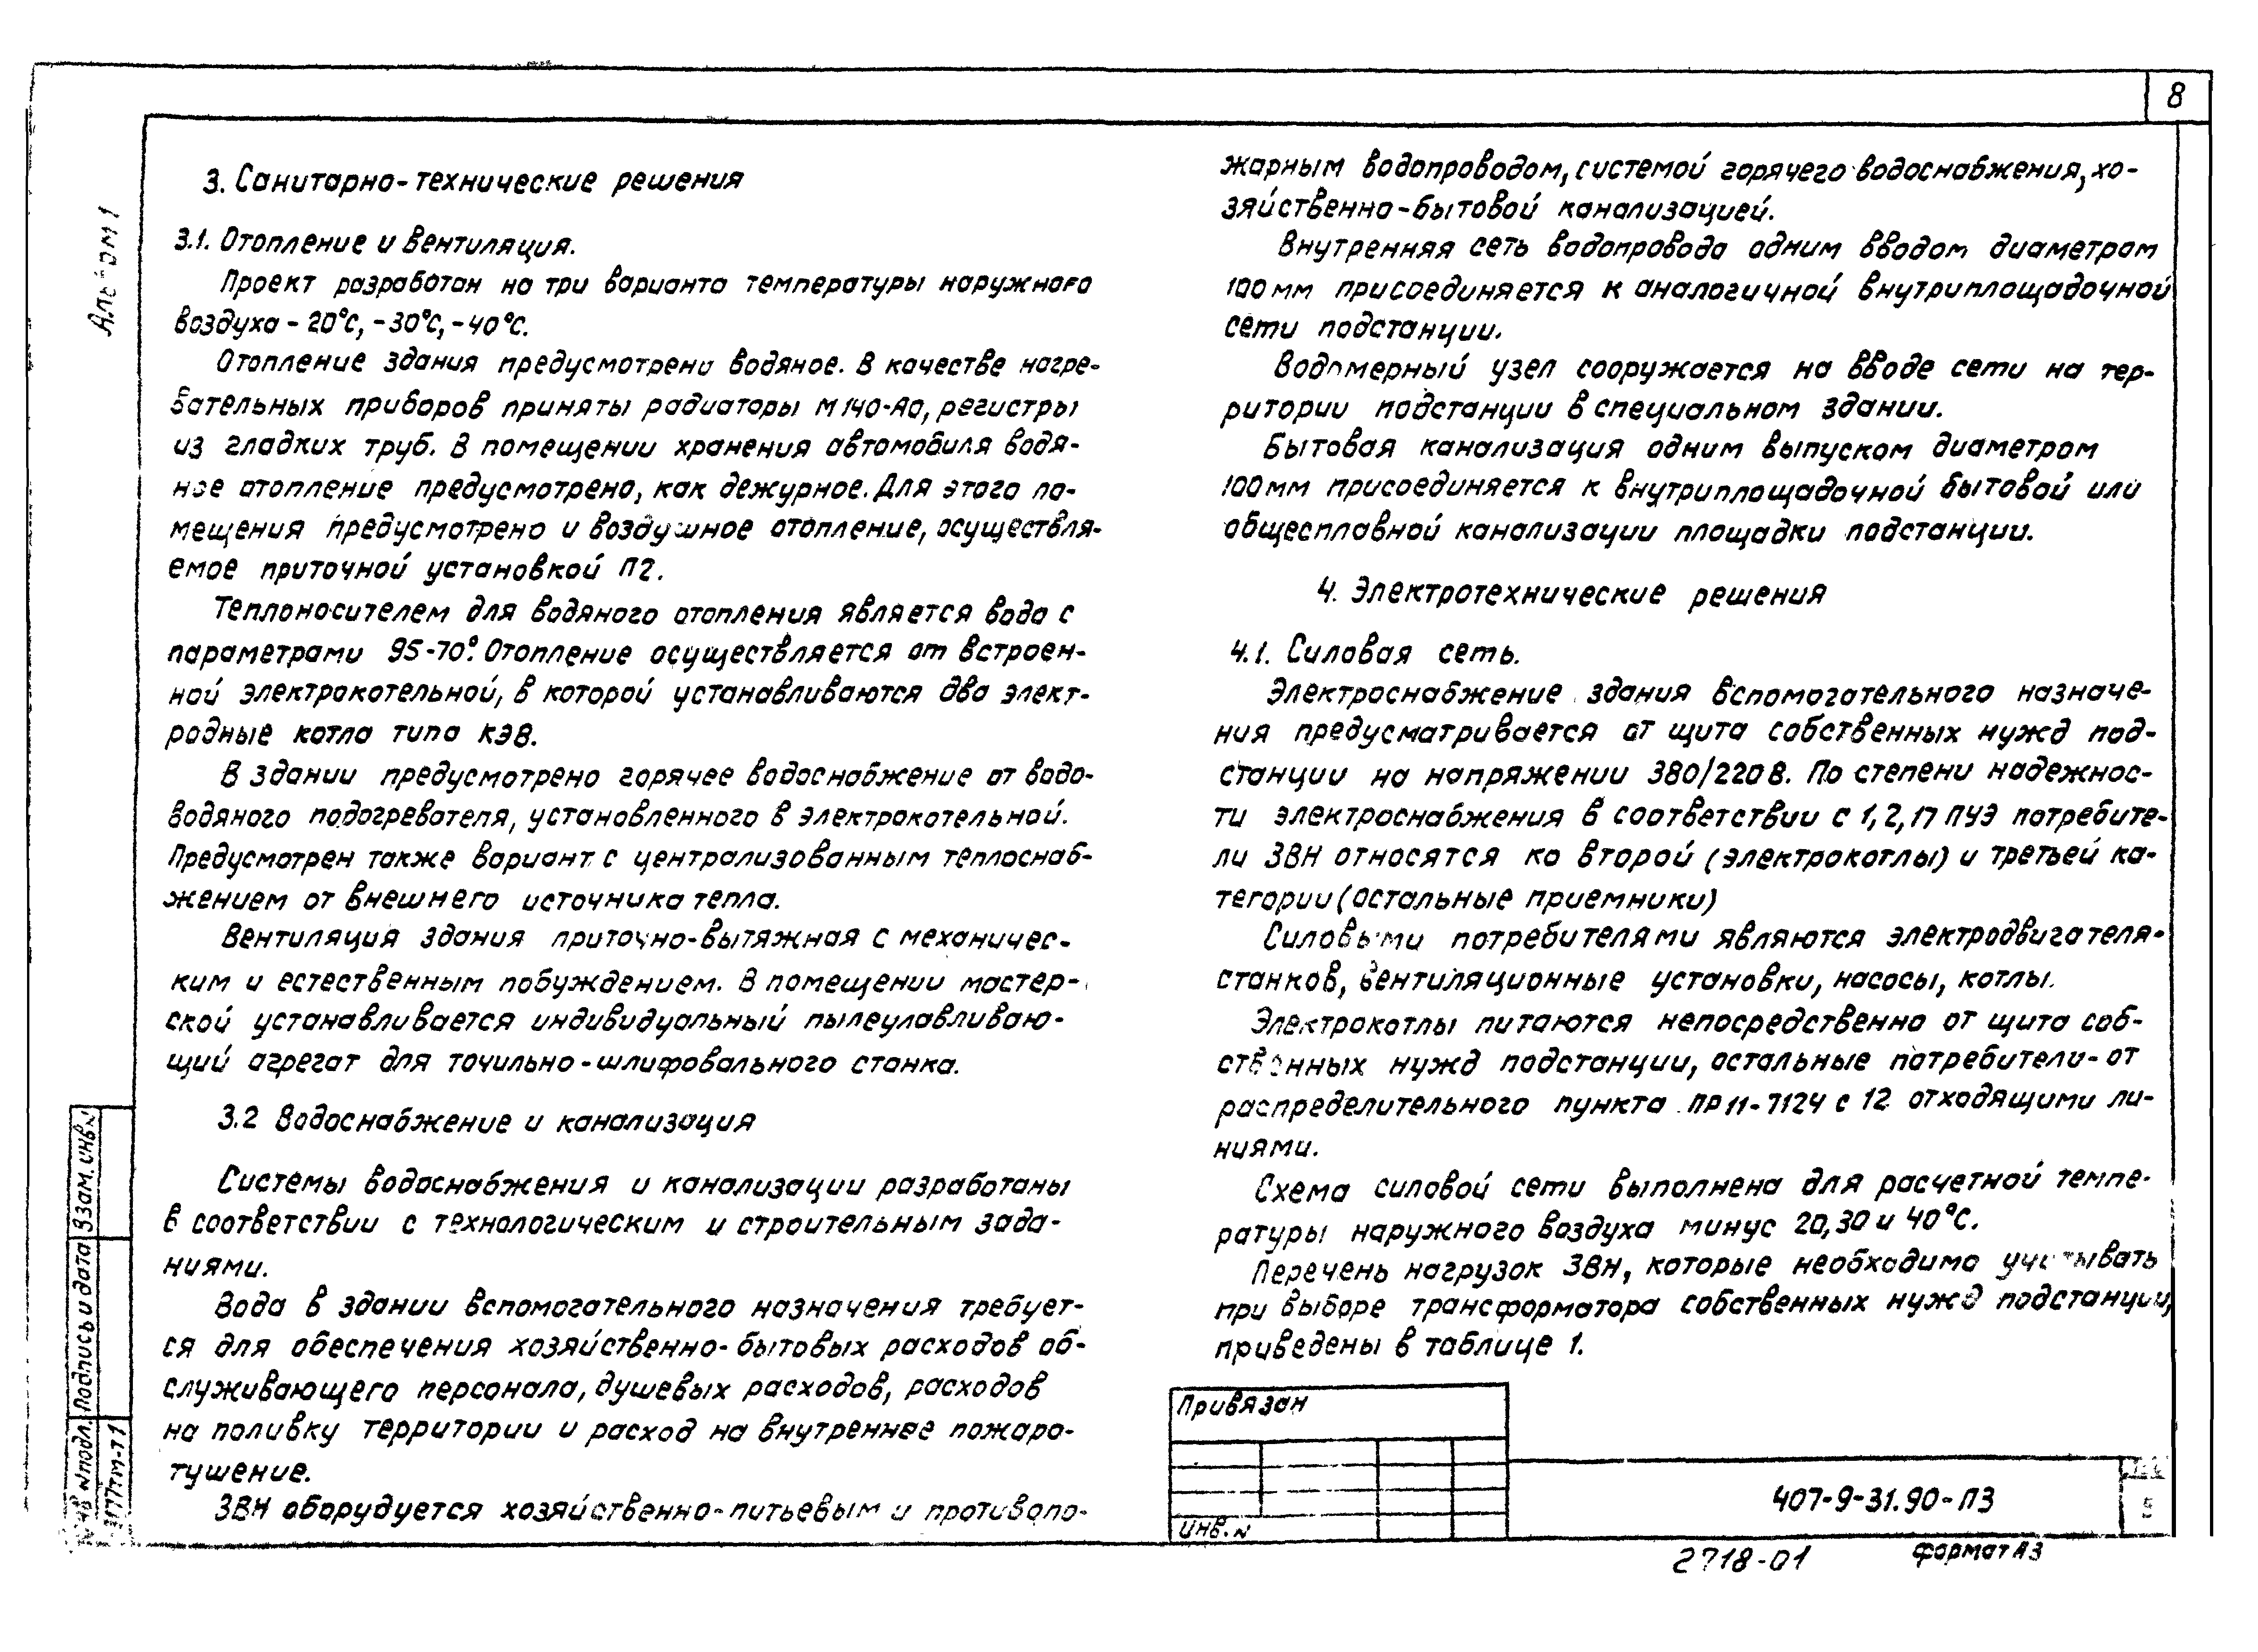 8
Альбом 1
3. Санитарно-технические решения
3.1. Отопление и вентиляция.
Проект разработан на три варианта температуры наружного
воздуха - 20°С, -30°С, -40°С.
Отопление здания предусмотрено водяное. В качестве нагре-
вательных приборов приняты радиаторы М140-АО, регистры
из гладких труб. В помещении хранения автомобиля водя-
ное отопление предусмотрено, как дежурное. Для этого по-
мещения предусмотрено и воздушное отопление, осуществля-
емое приточной установкой П2.
Теплоносителем для водяного отопления является вода с
параметрами 95-70°. Отопление осуществляется от встроен-
ной электрокотельной, в которой устанавливаются два элект-
родные котла типа КЭВ.
В здании предусмотрено горячее водоснабжение от водо-
водяного подогревателя, установленного в электрокотельной.
Предусмотрен также вариант с централизованным теплоснаб-
жением от внешнего источника тепла.
Вентиляция здания приточно-вытяжная с механичес-
ким и естественным побуждением. В помещении мастер-
ской устанавливается индивидуальный пылеулавливаю-
щий агрегат для точильно-шлифовального станка.
3.2 Водоснабжение и канализация
Системы водоснабжения и канализации разработаны
в соответствии с технологическим и строительным зада-
ниями.
Вода в здании вспомогательного назначения требует-
ся для обеспечения хозяйственно-бытовых расходов об-
служивающего персонала, душевых расходов, расходов
на поливку территории и расход на внутреннее пожаро-
тушение.
ЗВН оборудуется хозяйственно-питьевым и противопо-
жарным водопроводом, системой горячего водоснабжения, хо-
зяйственно-бытовой канализацией.
Внутренняя сеть водопровода одним вводом диаметром
100мм присоединяется к аналогичной внутриплощадочной
сети подстанции.
Водомерный узел сооружается на вводе сети на тер-
ритории подстанции в специальном здании.
Бытовая канализация одним выпуском диаметром
100мм присоединяется к внутриплощадочной бытовой или
общесплавной канализации площадки подстанции.
4. Электротехнические решения
4.1. Силовая сеть.
Электроснабжение здания вспомогательного назначе-
ния предусматривается от щита собственных нужд под-
станции на напряжении 380/220В. По степени надежнос-
ти электроснабжения в соответствии с 1,2,17 ПУЭ потребите-
ли ЗВН относятся ко второй (электрокотлы) и третьей ка-
тегории (остальные приемники)
Силовыми потребителями являются электродвигателя-
станков, вентиляционные установки, насосы, котлы.
Электрокотлы питаются непосредственно от щита соб-
ственных нужд подстанции, остальные потребители - от
распределительного пункта ПР11-7124 с 12 отходящими ли-
ниями.
Схема силовой сети выполнена для расчетной темпе-
ратуры наружного воздуха минус 20,30 и 40°С.
Перечень нагрузок ЗВН, которые необходимо учитывать
при выборе трансформатора собственных нужд подстанции,
приведены в таблице 1.
Привязан
Инв.N
407-9-31.90-ПЗ
5
2718-01
Формат А3
Взам. инв.N
Подпись и дата
Инв Nподл.
3177тм-т1